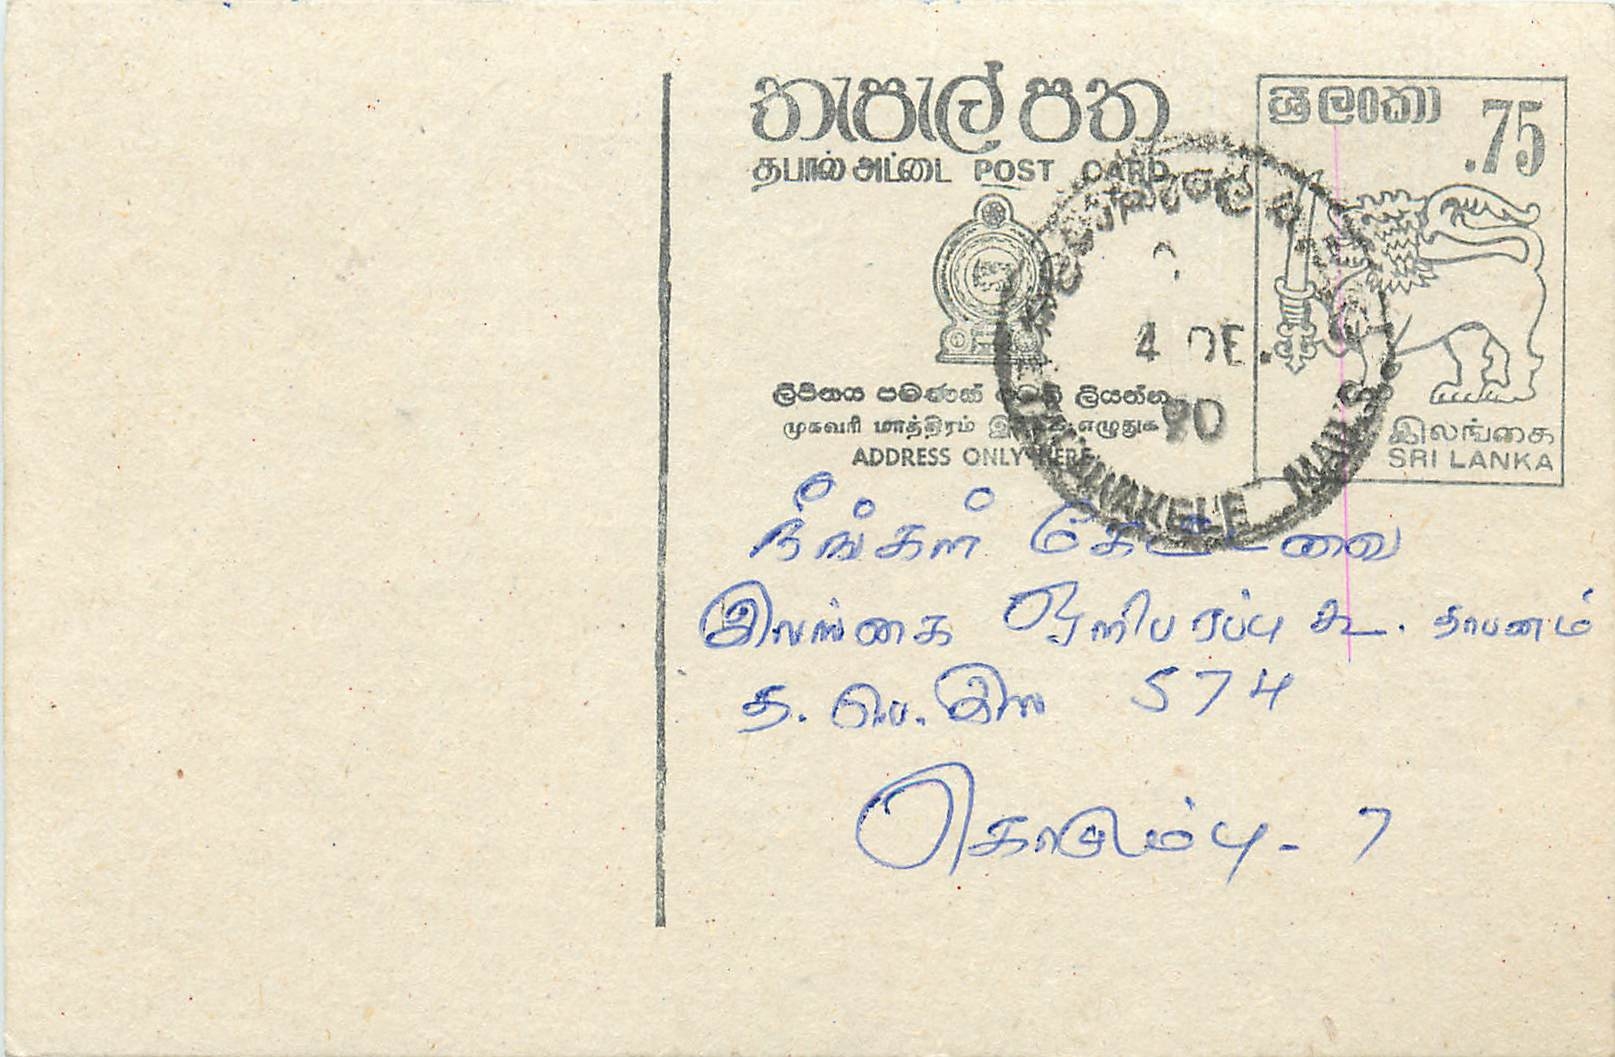 තැපැල් පත
தபால் அட்டை POST CARD
ශ්‍රී ලංකා .75
ලිපිනය පමණක් මෙහි ලියන්න
முகவரி மாத்திரம் இங்கே எழுதுக
ADDRESS ONLY HERE
இலங்கை
SRI LANKA
4 DE.
90
TALAWAKELE
நீங்கள் கேட்டவை
இலங்கை ஒளிபரப்பு கூ. தாபனம்
த. பெ. இல 574
கொழும்பு - 7